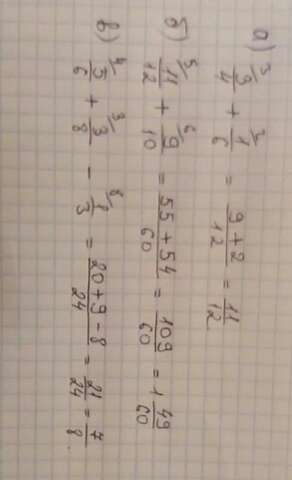 а) ³⁄ 3/4 + ²⁄ 1/6 = (9+2)/12 = 11/12
б) ⁵⁄ 11/12 + ⁶⁄ 9/10 = (55+54)/60 = 109/60 = 1 49/60
в) ⁴⁄ 5/6 + ³⁄ 3/8 - ⁸⁄ 1/3 = (20+9-8)/24 = 21/24 = 7/8.